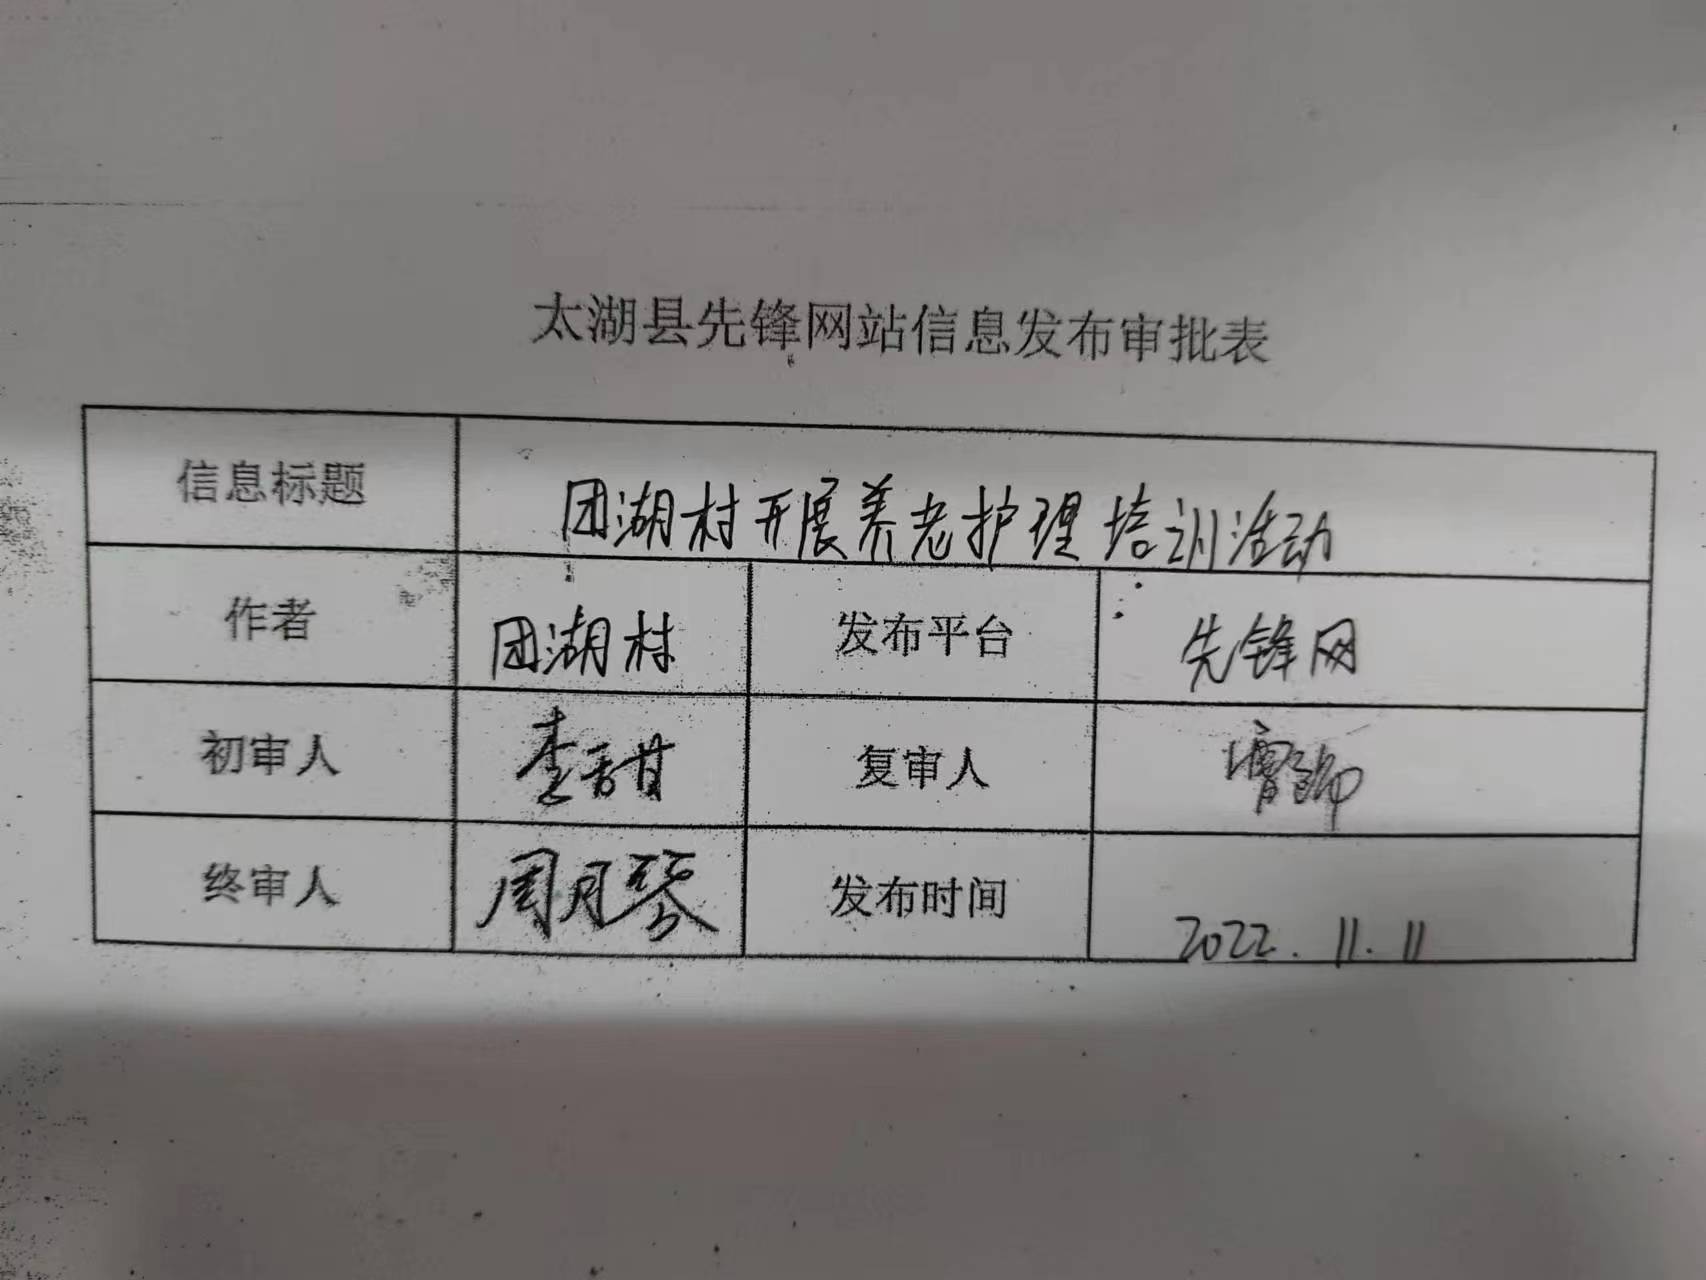 太湖县先锋网站信息发布审批表
信息标题 团湖村开展养老护理培训活动
作者 团湖村 发布平台 先锋网
初审人 李甜 复审人
终审人 周月琴 发布时间 2022.11.11